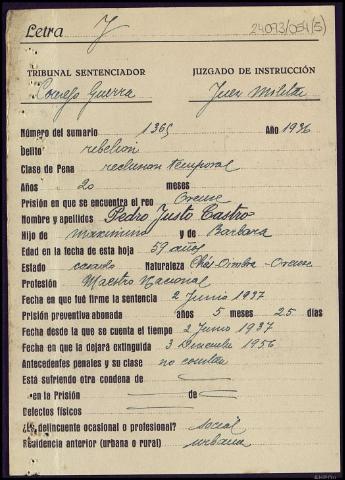 Letra J
24073/054(5)
TRIBUNAL SENTENCIADOR JUZGADO DE INSTRUCCIÓN
Consejo Guerra Juez Militar
Número del sumario 1365 Año 1936
Delito rebelión
Clase de Pena reclusion temporal
Años 20 meses
Prisión en que se encuentra el reo Orense
Nombre y apellidos Pedro Justo Castro
Hijo de Maximino y de Barbara
Edad en la fecha de esta hoja 59 años
Estado casado Naturaleza Chás-Oimbra-Orense
Profesión Maestro Nacional
Fecha en que fué firme la sentencia 2 Junio 1937
Prisión preventiva abonada años 5 meses 25 días
Fecha desde la que se cuenta el tiempo 2 Junio 1937
Fecha en que la dejará extinguida 3 Diciembre 1956
Antecedentes penales y su clase no constan
Está sufriendo otra condena de
en la Prisión de
Defectos físicos
¿Es delincuente ocasional o profesional? social
Residencia anterior (urbana o rural) urbana